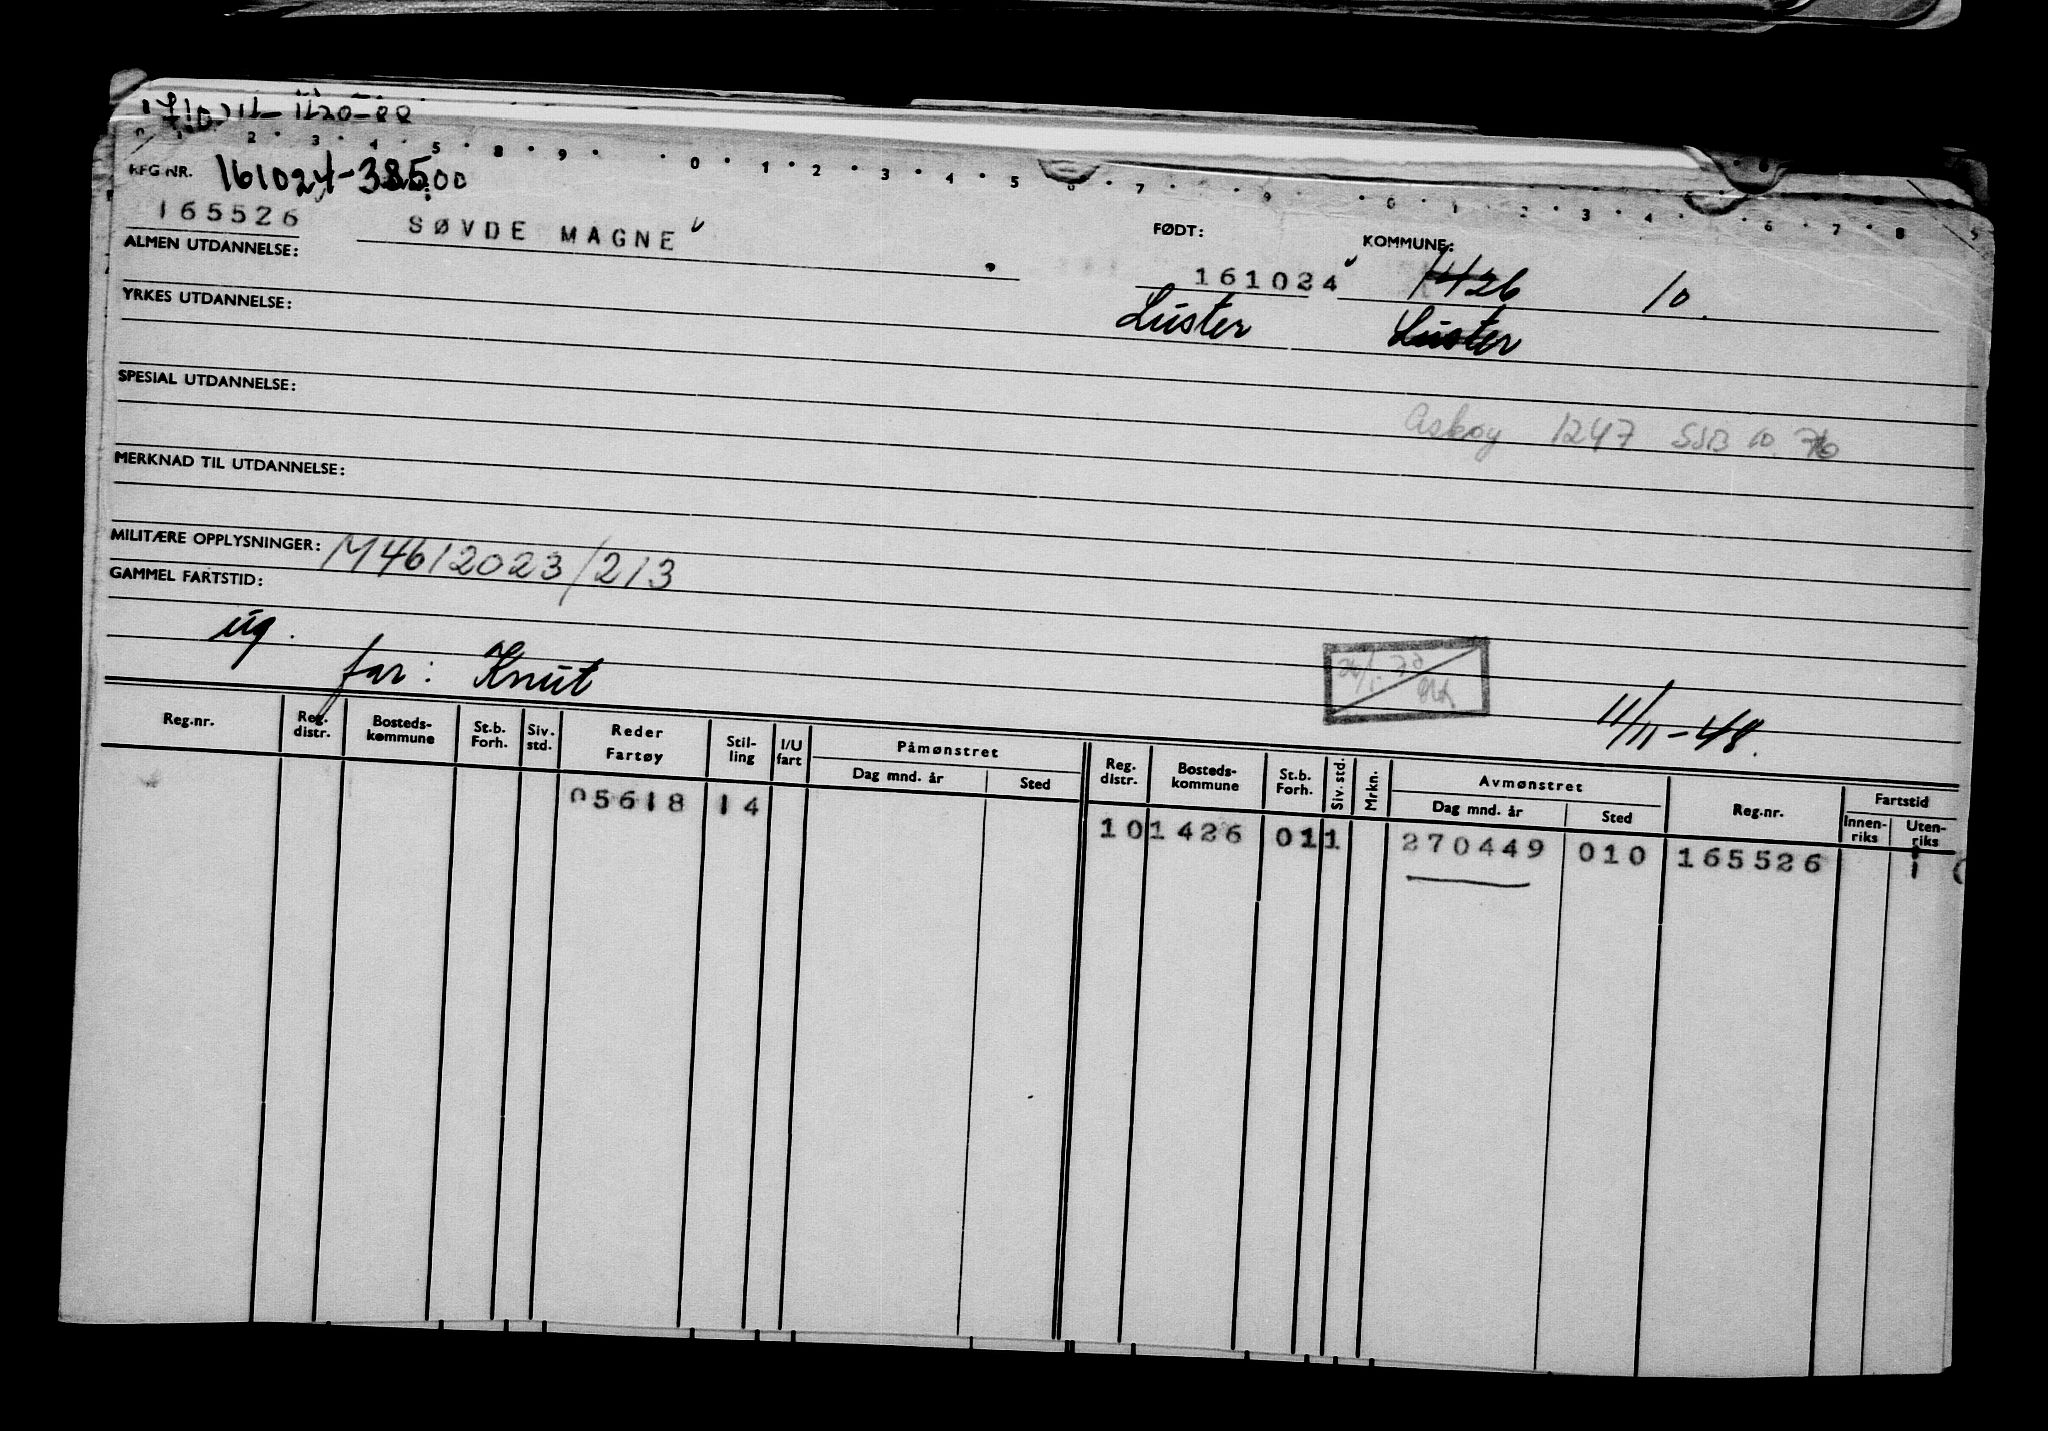 2 3 4 5 8 9 0 1 2 3 4 5 6 7 9 0 1 2 3 4 6 7 8 9
REG NR. 161024-38500
165526 SØVDE MAGNE FØDT: 161024 KOMMUNE: 1426 10.
ALMEN UTDANNELSE:
Luster Luster
YRKES UTDANNELSE:
SPESIAL UTDANNELSE:
Askøy 1247 SSB 10.76
MERKNAD TIL UTDANNELSE:
MILITÆRE OPPLYSNINGER: M4612023/213
GAMMEL FARTSTID:
ug.
far: Knut
11/11-48.
Reg.nr. Reg. distr. Bosteds-kommune St.b. Forh. Siv. std. Reder Fartøy Stil-ling I/U fart Påmønstret Dag mnd. år Sted Reg. distr. Bosteds-kommune St.b. Forh. Siv. std. Mrkn. Avmønstret Dag mnd. år Sted Reg.nr. Fartstid Innen-riks Uten-riks
05618 14 10 1426 01 1 270449 010 165526 1